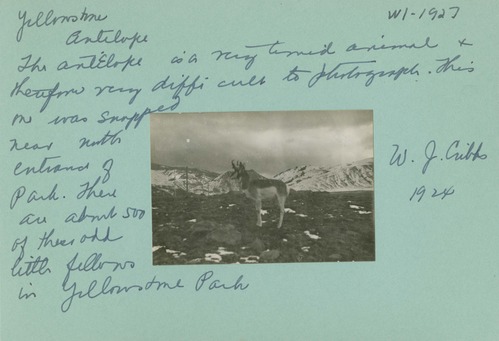 Yellowstone
Antelope
W1-1927
The antelope is a very timid animal &
therefore very difficult to photograph. This
one was snapped
near north
entrance of
Park. There
are about 500
of these odd
little fellows
in Yellowstone Park
W. J. Cribbs
1924